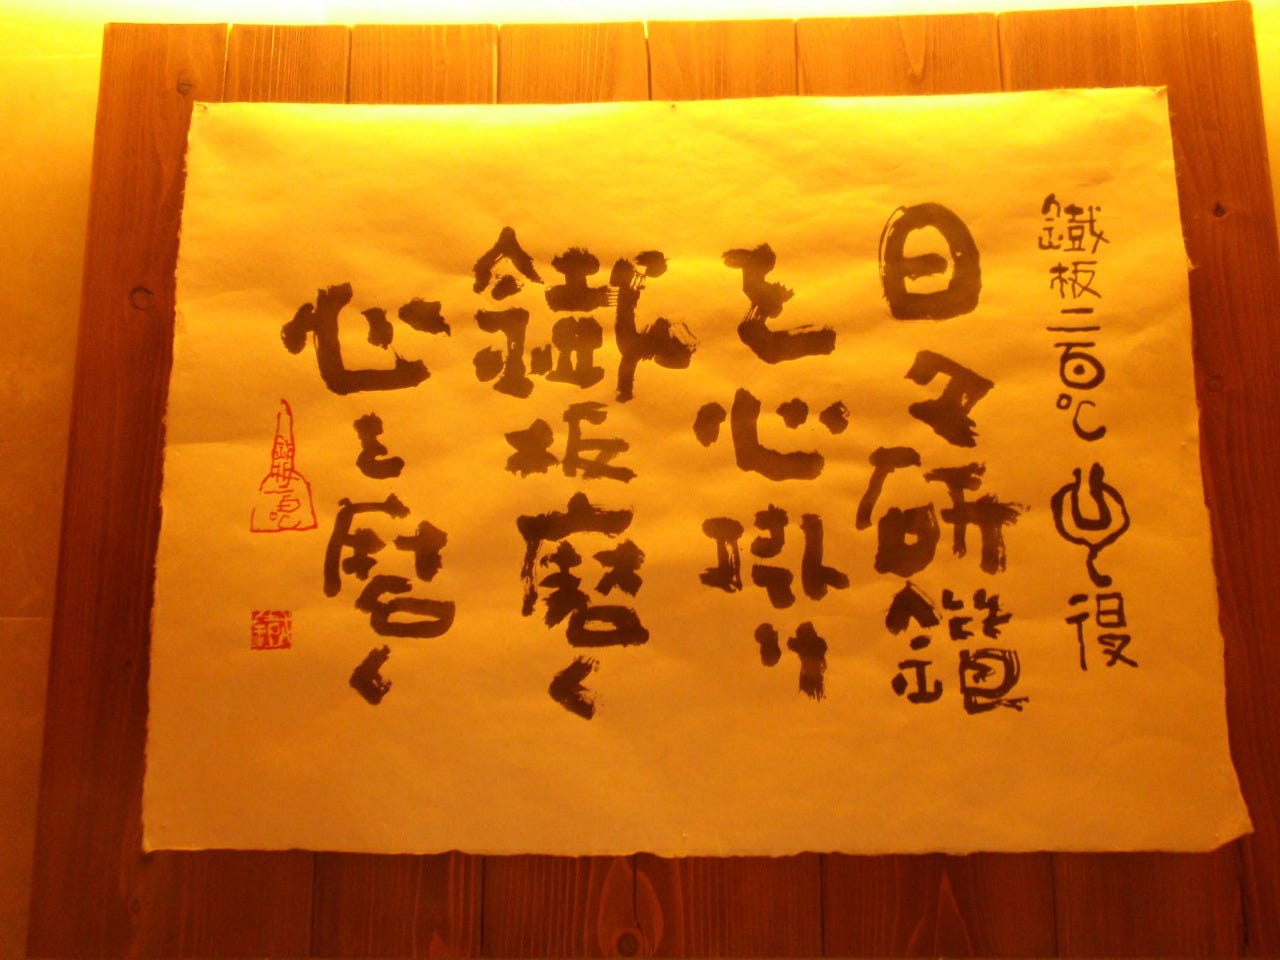 鐵板二百℃心得
日々研鑽
を心掛け
鐵板磨く
心を磨く